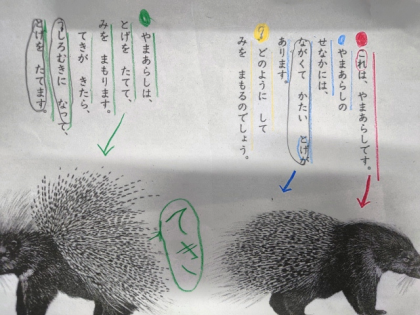 これは、やまあらしです。
やまあらしの
せなかには、
ながくて かたい とげが
あります。
どのように して
みを まもるのでしょう。
やまあらしは、
とげを たてて、
みを まもります。
てきが きたら、
うしろむきに なって、
とげを たてます。
てき